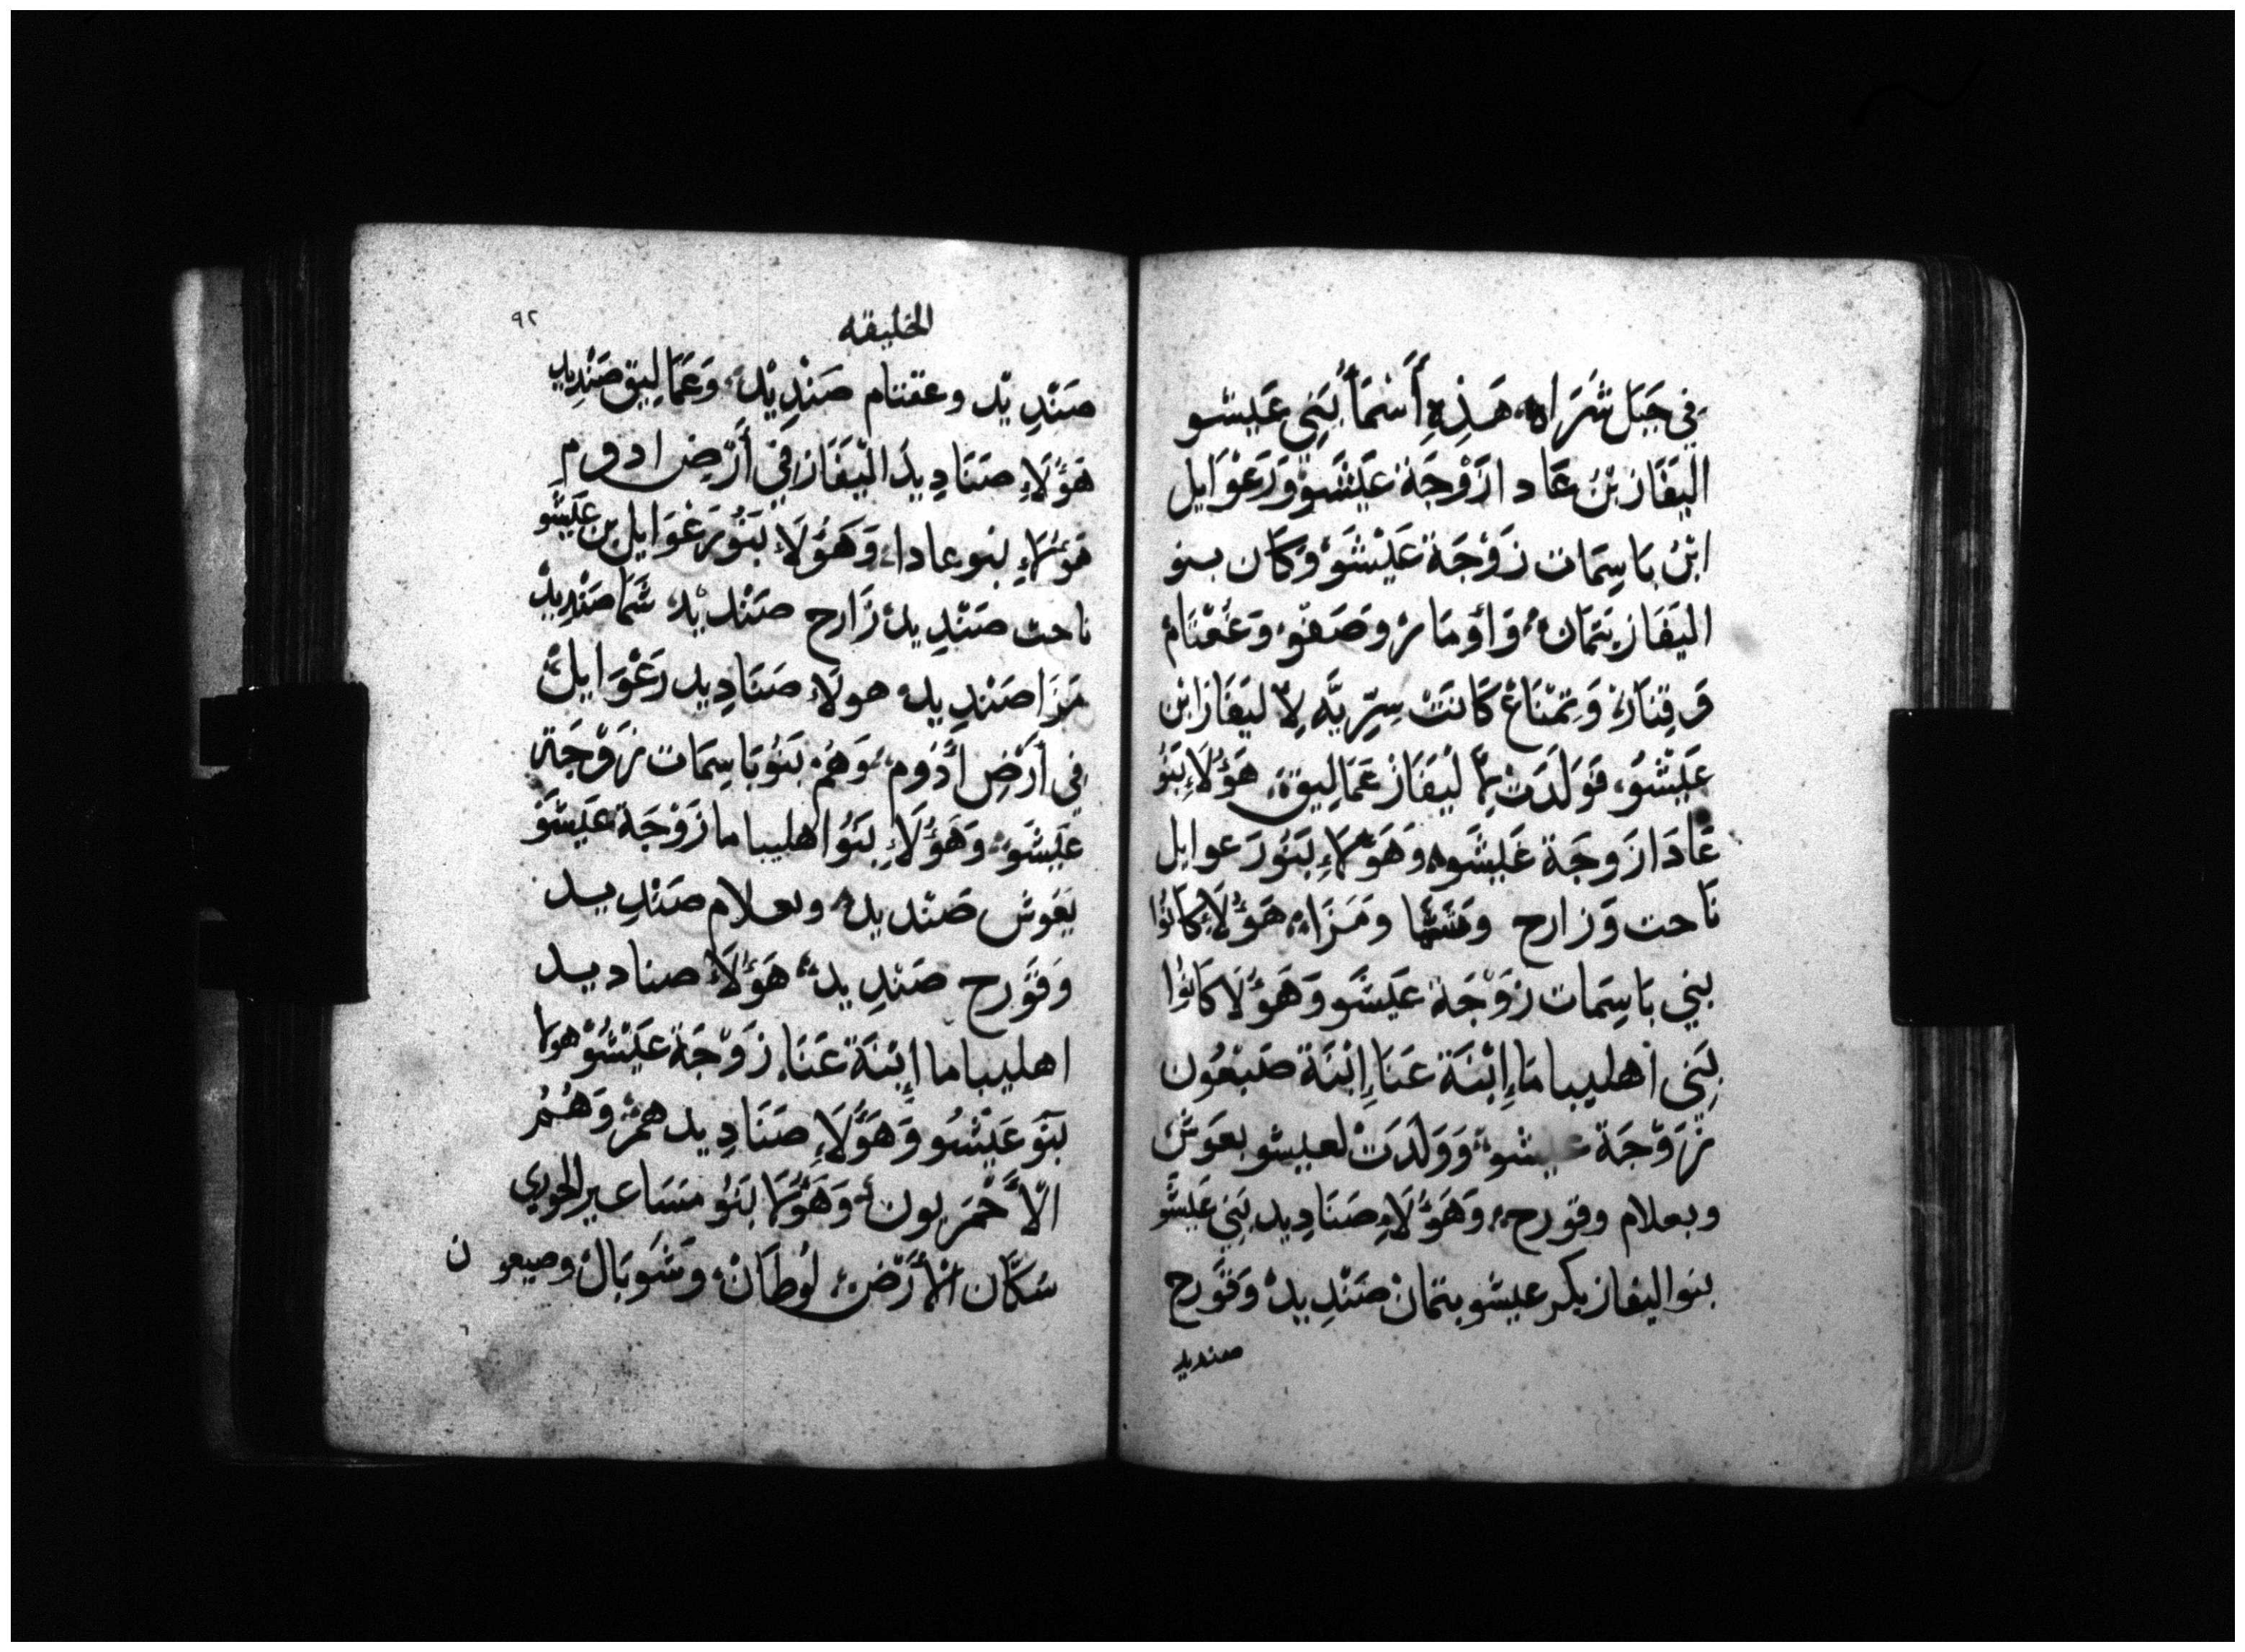 فِي جَبَل شَرَاه هَذِهِ أَسْمَأُ بَنِي عَيشو
اليَفَاز بْنُ عَادا زَوْجَة عَيْشَوْ وَرَعْوَايل
ابْنُ بَاسِمَات زَوْجَة عَيْشَوْ وَكَان بنو
اليَفَاز يَتمَان وَأومَار وصَفْو وَغَعْتَام
وَقِنَاز وَتِمْنَاعْ كَانَتْ سِرِّيَّه لِاليَفَاز ابْن
عَيْشَوْ فَوَلَدَت لِاليَفَاز عَمَالِيق هَؤُلَاءِ بَنُو
عَادَا زَوجَة عَيشَو وَهَؤُلَاءِ بَنُو رَعوايل
نَاحت وَزارح وشما ومَزَا هَؤُلَاءِ كَانُوا
بني بَاسِمَات زَوْجَة عَيشَو وَهَؤُلَا كَانُوا
بَنِي اهليباما إِبْنَة عَنَا إِبْنَة صَبْعُون
زَوْجَة عيشو وَوَلَدَتْ لعيشو يعوش
ويعلام وقورح وَهَؤُلَاءِ صَنَادِيد بَنِي عَيشَو
بنو اليفاز بكر عيشو يتمان صَنْدِيد وَقَورح
صنديد
الخليقه
٩٢
صَنْدِيْد وعقتنام صَنْدِيْد وَعَمَالِيق صَنْدِيد
هَؤُلَاءِ صَنَادِيد اليْفَاز فِي أَرْضِ ادوم
هَؤُلَاءِ بنو عادا وَهَؤُلَاءِ بَنُو رَعْوَايل بن عَيشو
ناحت صَنْدِيد زَارح صَنْدِيْد شَمَا صَنْدِيدْ
مَزَا صَنْدِيد هولَاءِ صَنَادِيد رَعْوَايل
فِي أَرْضِ ادُوم وَهُم بَنُو بَاسِمَات زَوْجَة
عَيشَو وَهَؤُلَاءِ بَنُو اهليباما زَوْجَة عَيشَوْ
يَعُوش صَنْديد ويعلام صَنْدِيد
وَقَورح صَنْدِيد هَؤُلَاءِ صناديد
اهليباما إِبْنَة عَنَا زَوْجَة عَيْشَوْ هولا
بَنُو عَيْشَو وَهَؤُلَاءِ صَنَادِيدهمْ وَهُمُ
الْأَحْمَريون وَهَؤُلَا بَنُو سَاعير الحوري
سَكَّان الْأَرْض لُوطَانْ وَشَوبَالْ وصبعون